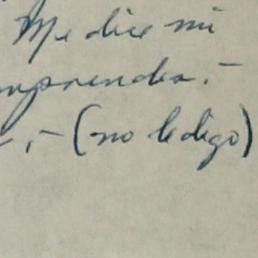 Me dice mi
mprender. -
-, - (no le digo)